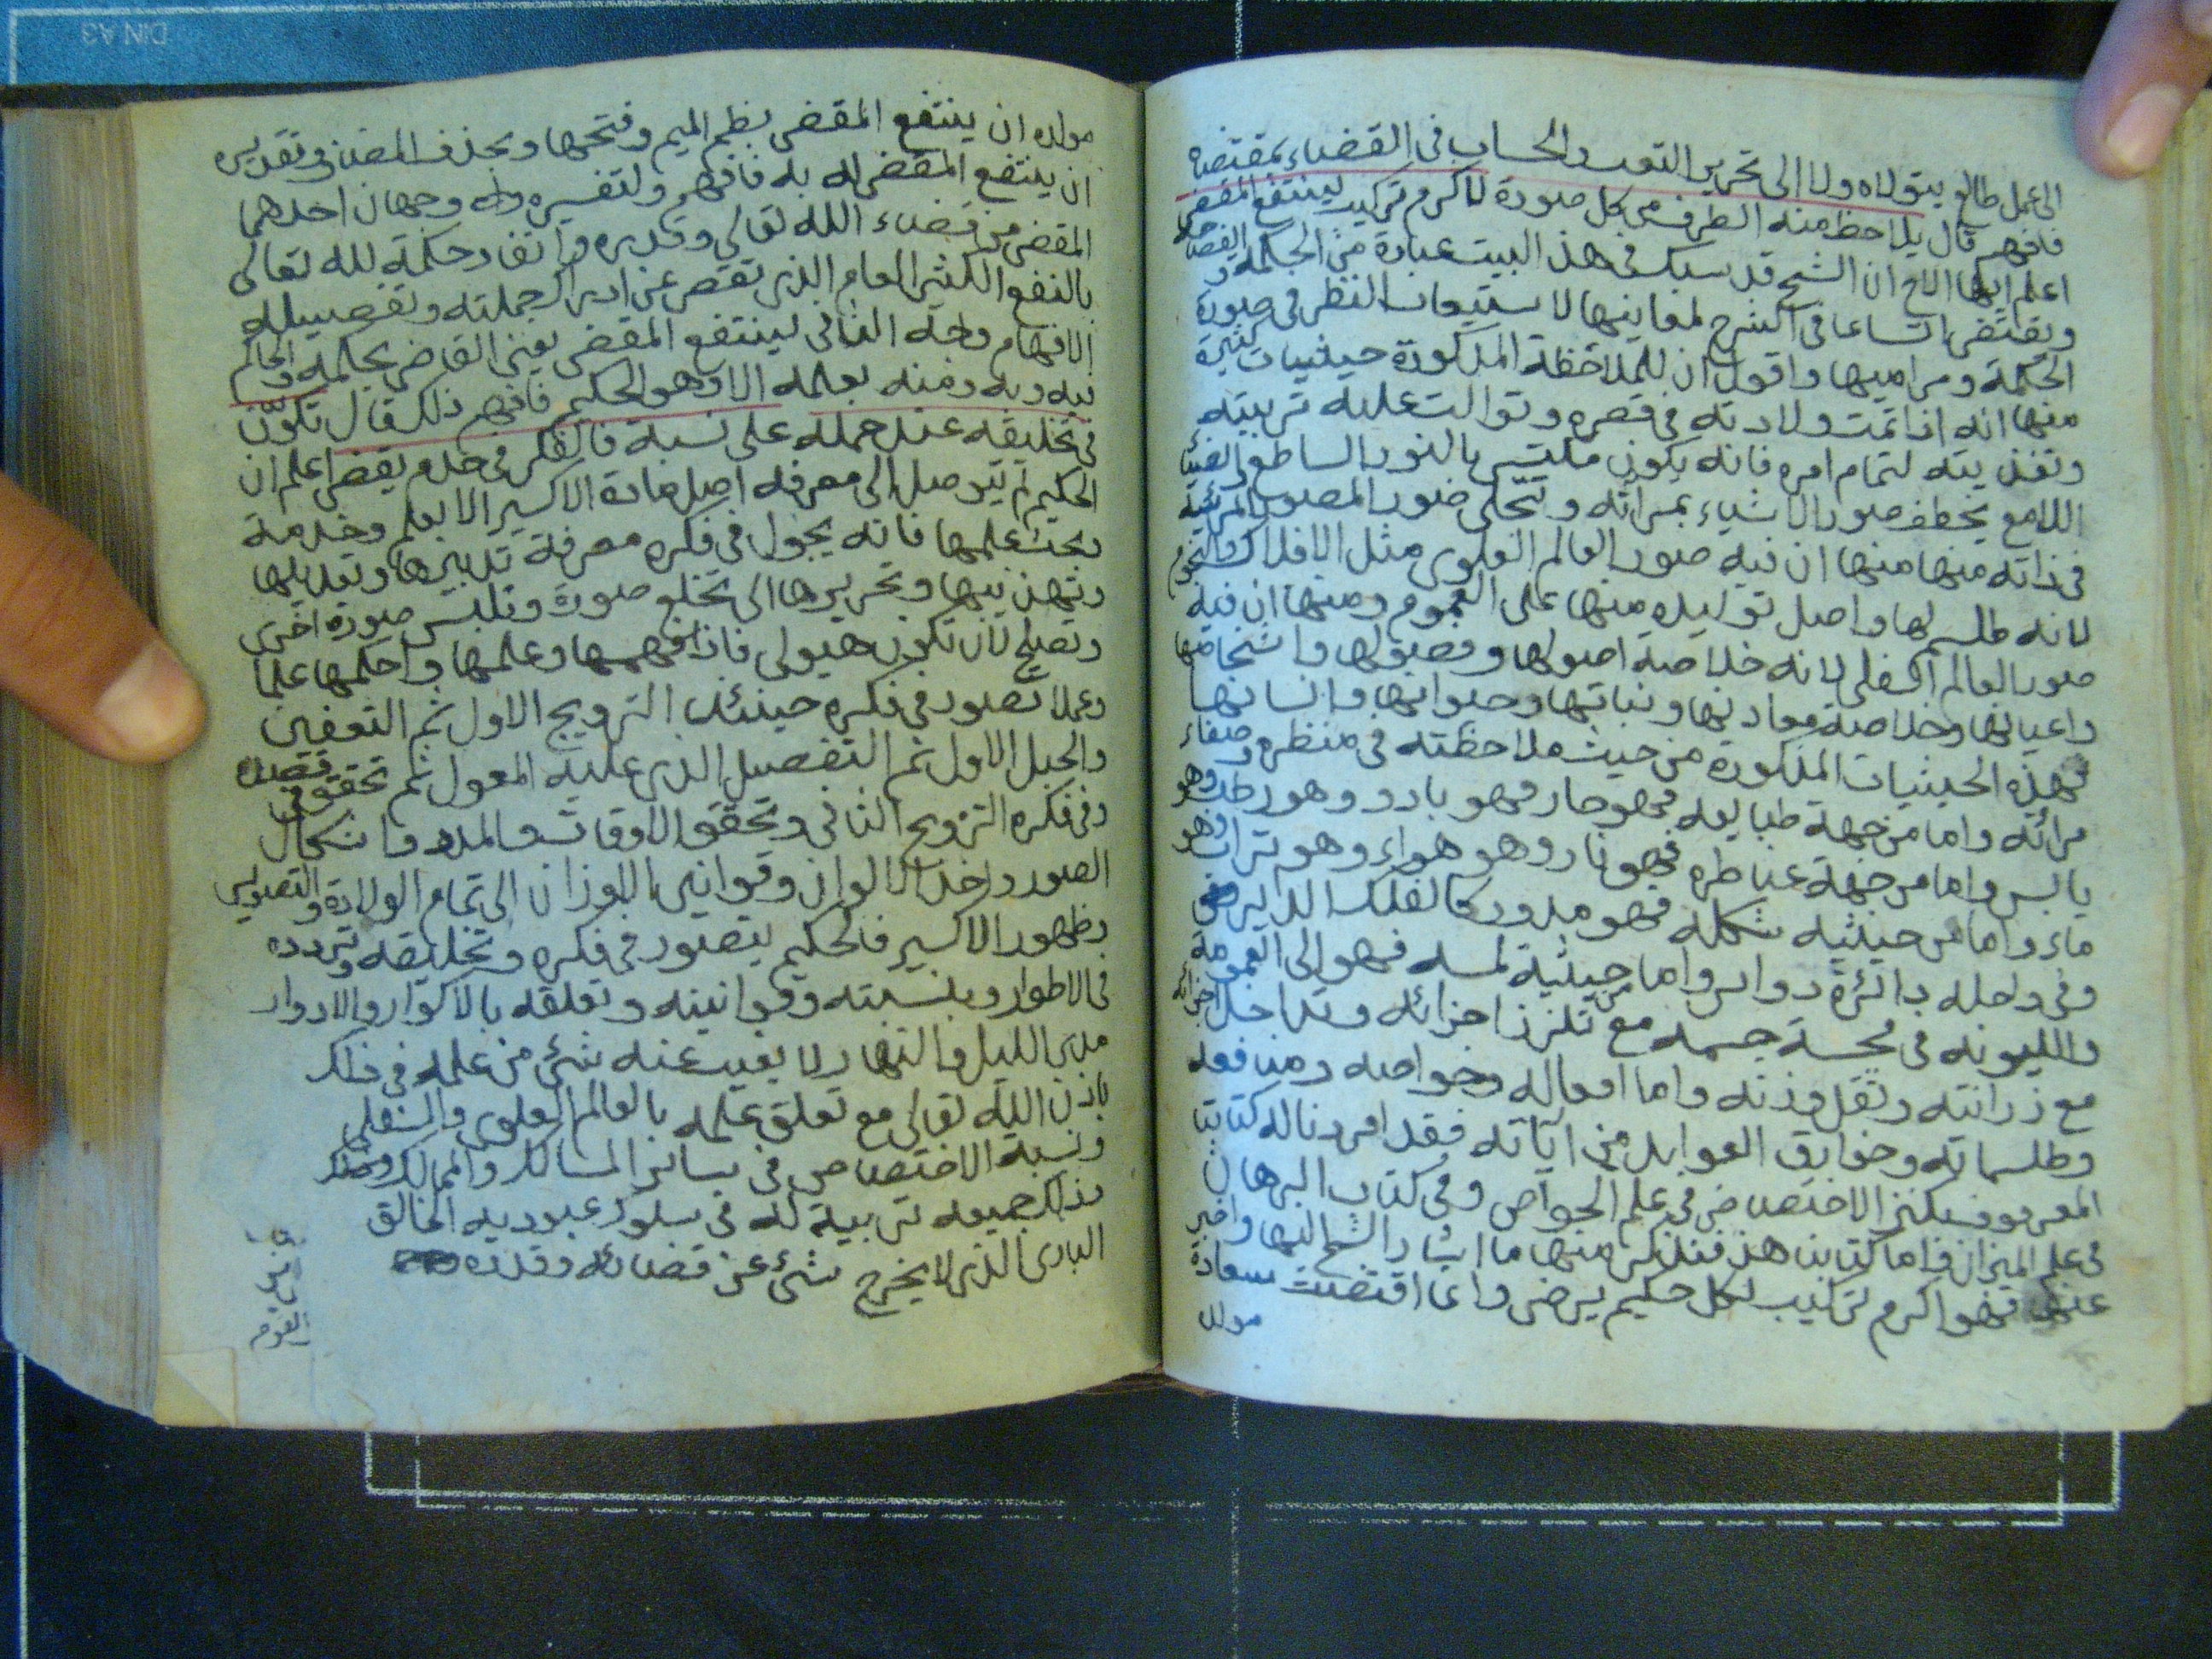 الى عمل طالع يتولاه ولا الى تحرير التعب والحساب في القضاء بمقتضاه
فافهم قال يلاحظ منه الطرف من كل صورة لاكرم تركيب لينتفع المقضى
اعلم ايها الاخ ان الشيخ قد سبك في هذا البيت عبارة من الحكمة و
ويقتضى اتساعا في الشرح لمعاينها لاستيعاب النظر في صورة
الحكمة ومراميها واقول ان للملاحظة المذكورة حيثيات كثيرة
منها انه اذا تمت ولادته في قصره وتوالت عليه تربيته
وتغذيته لتمام امره فانه يكون ملتبس بالنور الساطع والضياء
اللامع يخطف صور الاشياء بمرآته وتتجلى صور المصور المرئية
في ذاته منها منها ان فيه صور العالم العلوى مثل الافلاك والنجوم
لانه طلسم لها واصل توليده منها على العموم ومنها ان فيه
صور العالم السفلى لانه خلاصة اصولها وفصولها واشخاصها
واعيانها وخلاصة معادنها ونباتها وحيوانها وانسانها
فهذه الحيثيات المذكورة من حيث ملاحظته في منظره وصفاء
مرآته واما من جهة طبايعه فهو حار فهو بارد وهو رطب وهو
يابس واما من جهة عناصره فهو نار وهو هواء وهو تراب وهو
ماء واما من حيثيه شكله فهو مدور كالفلك الداير
وفي داخله دائرة دوار واما حيثية لمسه فهو الى العمومة
والليونه في مجسة جسمه مع تلزز اجزائه وتداخل اجزائه
مع زرانته وثقل وزنه واما افعاله وخواصه ومنافعه
وطلسماته وخوارق العوايد من آياته فقد افردنا له كتابنا
المعروف بكنز الاختصاص في علم الخواص وفي كتاب البرهان
في علم الميزان واما كتابنا هذا فنذكر منها ما اشار الشيخ اليها واخبر
عنها فهو اكرم تركيب لكل حكيم يرضى واى اقتضت سعادة
مولد
مولده ان ينتفع المقضى بظم الميم وفتحها وبحذف المضاف وتقديره
ان ينتفع المقضى له به فافهم ولتفسيره وله وجهان احدهما
المقضى من قضاء الله تعالى وقدره واتقاد حكمة لله تعالى
بالنفع الكثير العام الذى تقصر عن ادراك جملته وتفصيله
الافهام وجه الثانى لينتفع المقضى يعنى القاضى بحكمه والحاكم
فيه وبه ومنه بعلمه الا وهو الحكيم فافهم ذلك قال تكون
في تخليقه عند حمله على نسبة فالفكر في خدم يقضى اعلم ان
الحكيم لم يتوصل الى معرفه اصل مادة الاكسير الا بعلم وخدمة
بحيث علمها فانه يجول في فكره معرفة تدبيرها وتعديلها
وتهذيبها وتحريرها الى تخلع صورة وتلبس صورة اخرى
وتصلح لان تكون هيولى فاذا فهمها وعلمها واحكمها علما
وعملا تصور في فكره حينئذ التزويج الاول ثم التعفين
والحبل الاول ثم التفصيل الذى عليه المعول ثم تحقق في
وفي فكره التزويج الثانى وتحقق الاوقات والمدد واشكال
الصور واخذ الالوان وقوانين الاوزان الى تمام الولادة والتصوير
وظهور الاكسير فالحكيم يتصور في فكره وتخليقه وتردده
في الاطوار وبنسبته وقوانينه وتعلقه بالاكوار والادوار
مدى الليل والنهار ولا يغيب عنه شئ من علمه في ذلك
باذن الله تعالى مع تعلق علمه بالعالم العلوى والسفلى
ونسبة الاختصاص في سائر المسالك والممالك وذلك
بذلك جميعه تربية له في سلوك عبوديه الخالق
البارى الذى لا يخرج شئ عن قضائه وقدره